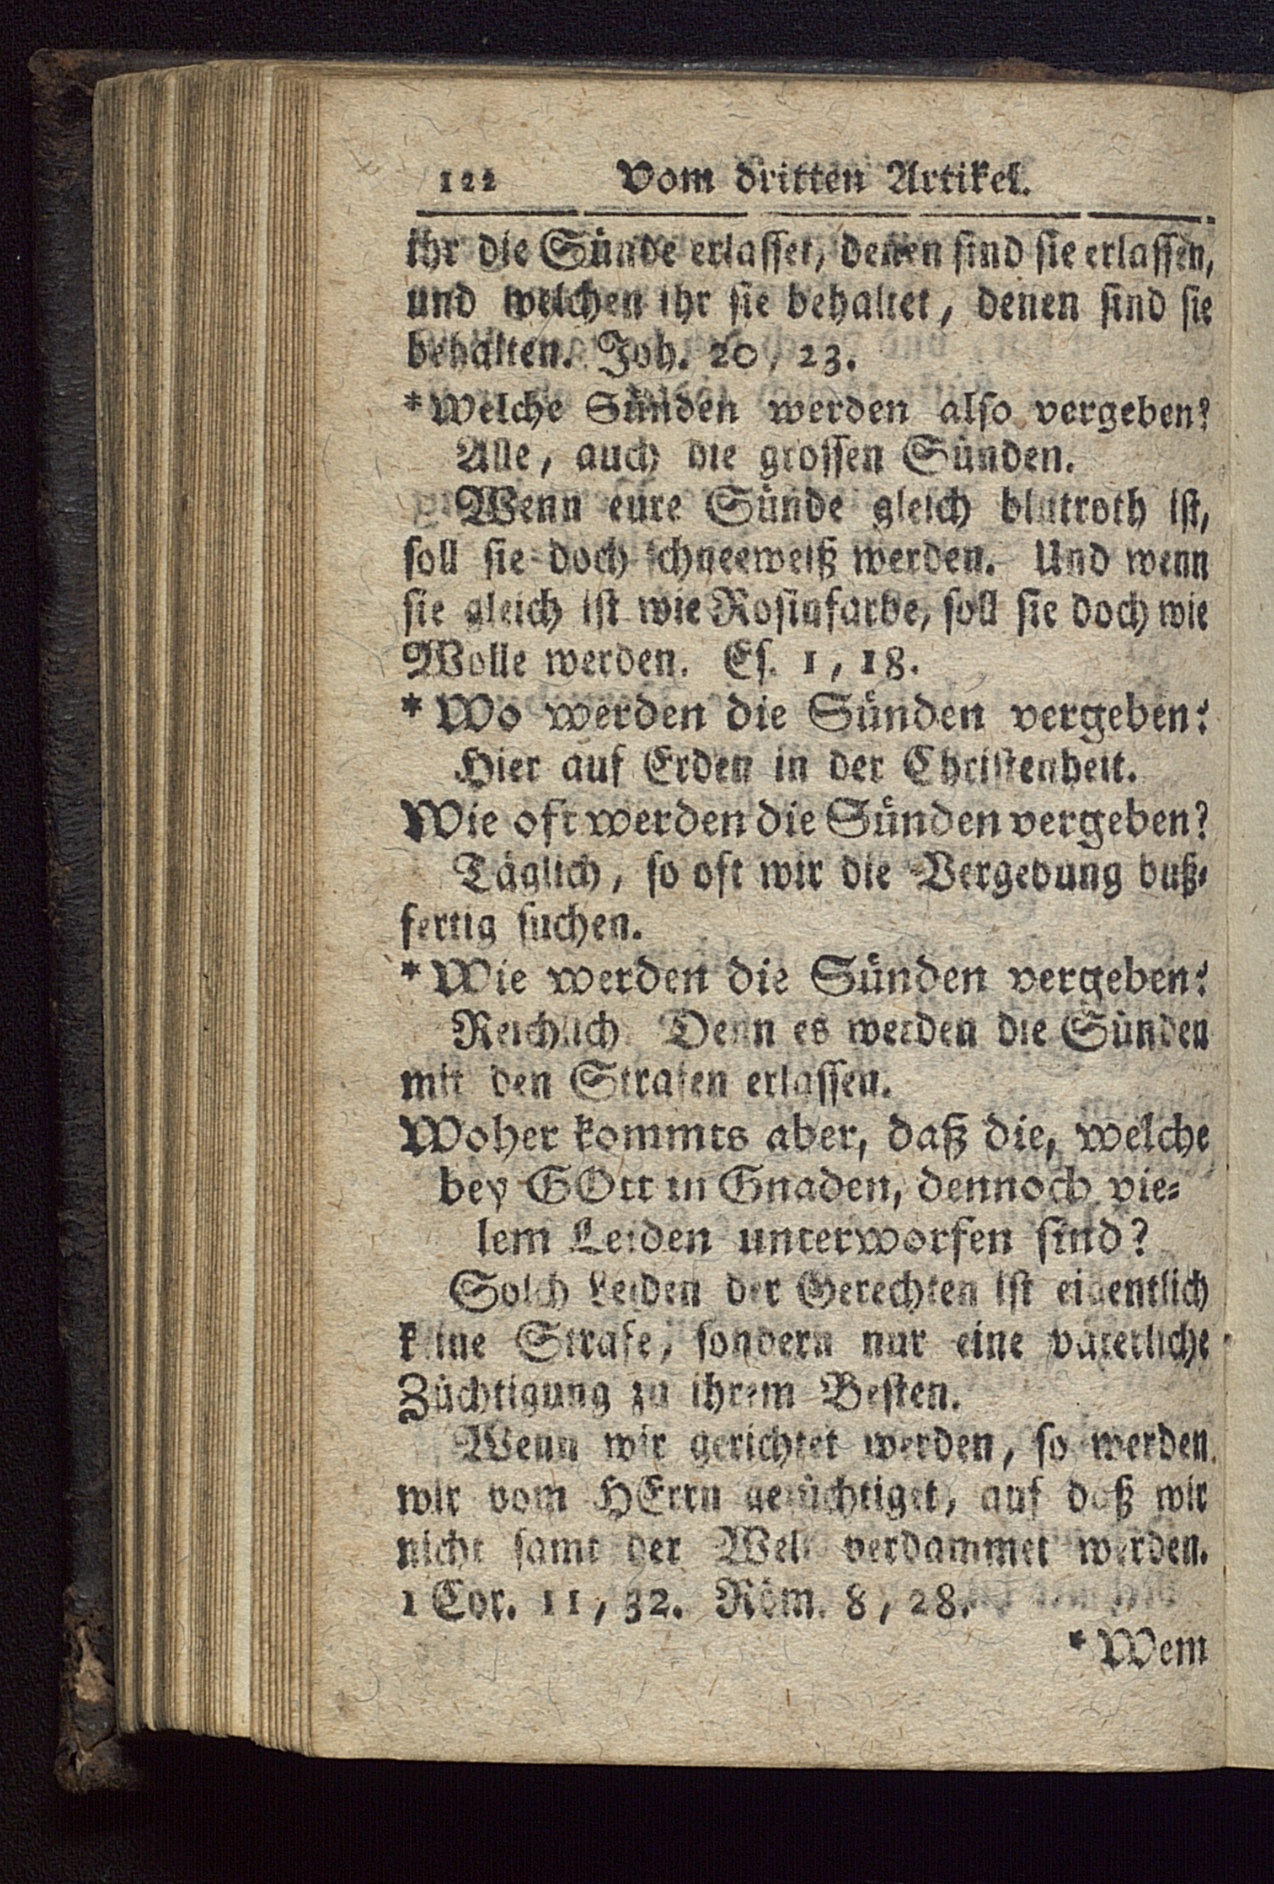 122 Vom dritten Artikel.
ihr die Sünde erlasset, denen sind sie erlassen,
und welchen ihr sie behaltet, denen sind sie
behalten. Joh. 20, 23.
*Welche Sünden werden also vergeben?
Alle, auch die grossen Sünden.
Wenn eure Sünde gleich blutroth ist,
soll sie doch schneeweiß werden. Und wenn
sie gleich ist wie Rosinfarbe, soll sie doch wie
Wolle werden. Es. 1, 18.
*Wo werden die Sünden vergeben?
Hier auf Erden in der Christenheit.
Wie oft werden die Sünden vergeben?
Täglich, so oft wir die Vergebung buß-
fertig suchen.
*Wie werden die Sünden vergeben?
Reichlich. Denn es werden die Sünden
mit den Strafen erlassen.
Woher kommts aber, daß die, welche
bey GOtt in Gnaden, dennoch vie-
lem Leiden unterworfen sind?
Solch Leiden der Gerechten ist eigentlich
keine Strafe, sondern nur eine väterliche
Züchtigung zu ihrem Besten.
Wenn wir gerichtet werden, so werden
wir vom HErrn gezüchtiget, auf daß wir
nicht samt der Welt verdammet werden.
1 Cor. 11, 32. Röm. 8, 28.
*Wem